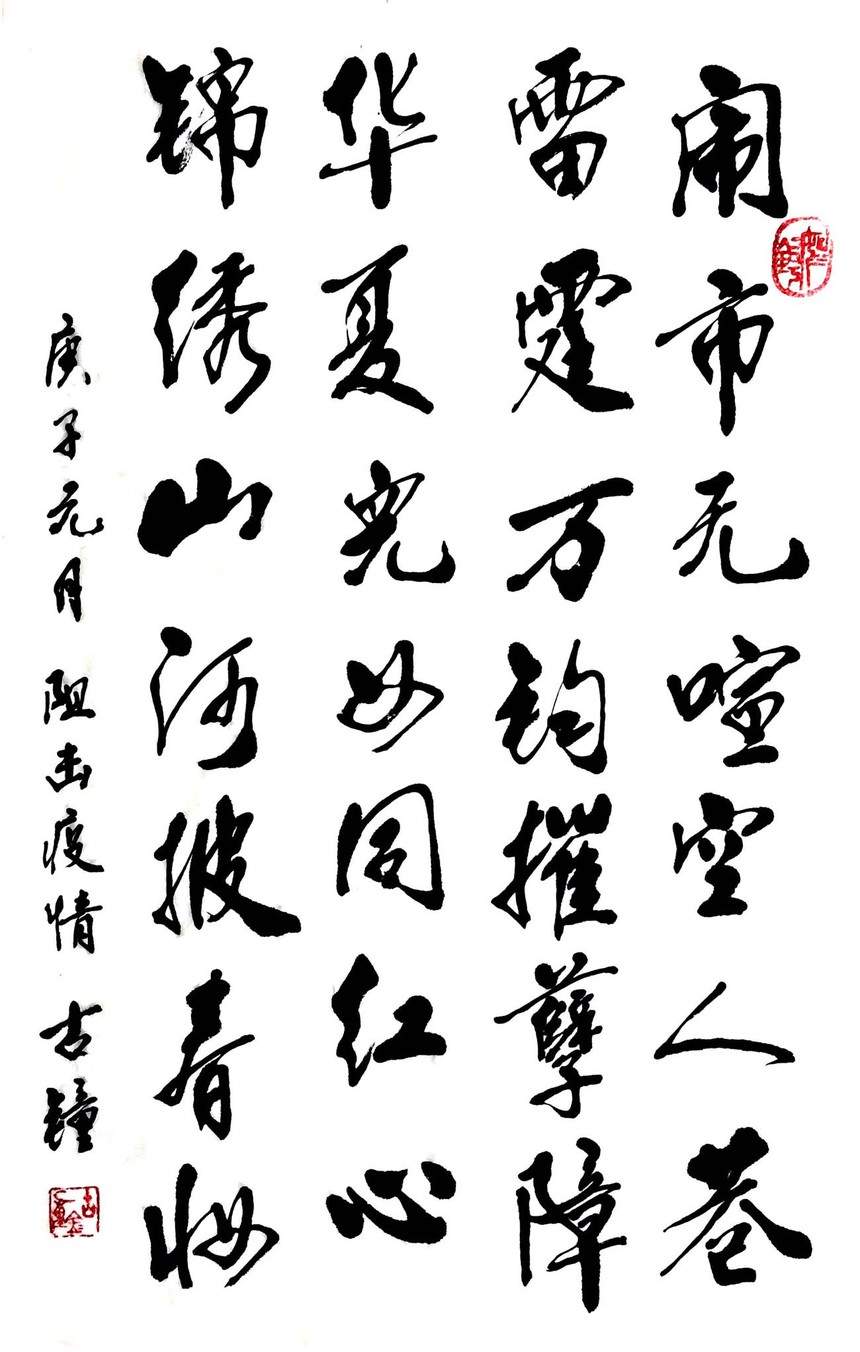 闹市无喧空人巷
雷霆万钧摧孽障
华夏儿女同红心
锦绣山河披春妆
庚子元月 阻击疫情 古钟